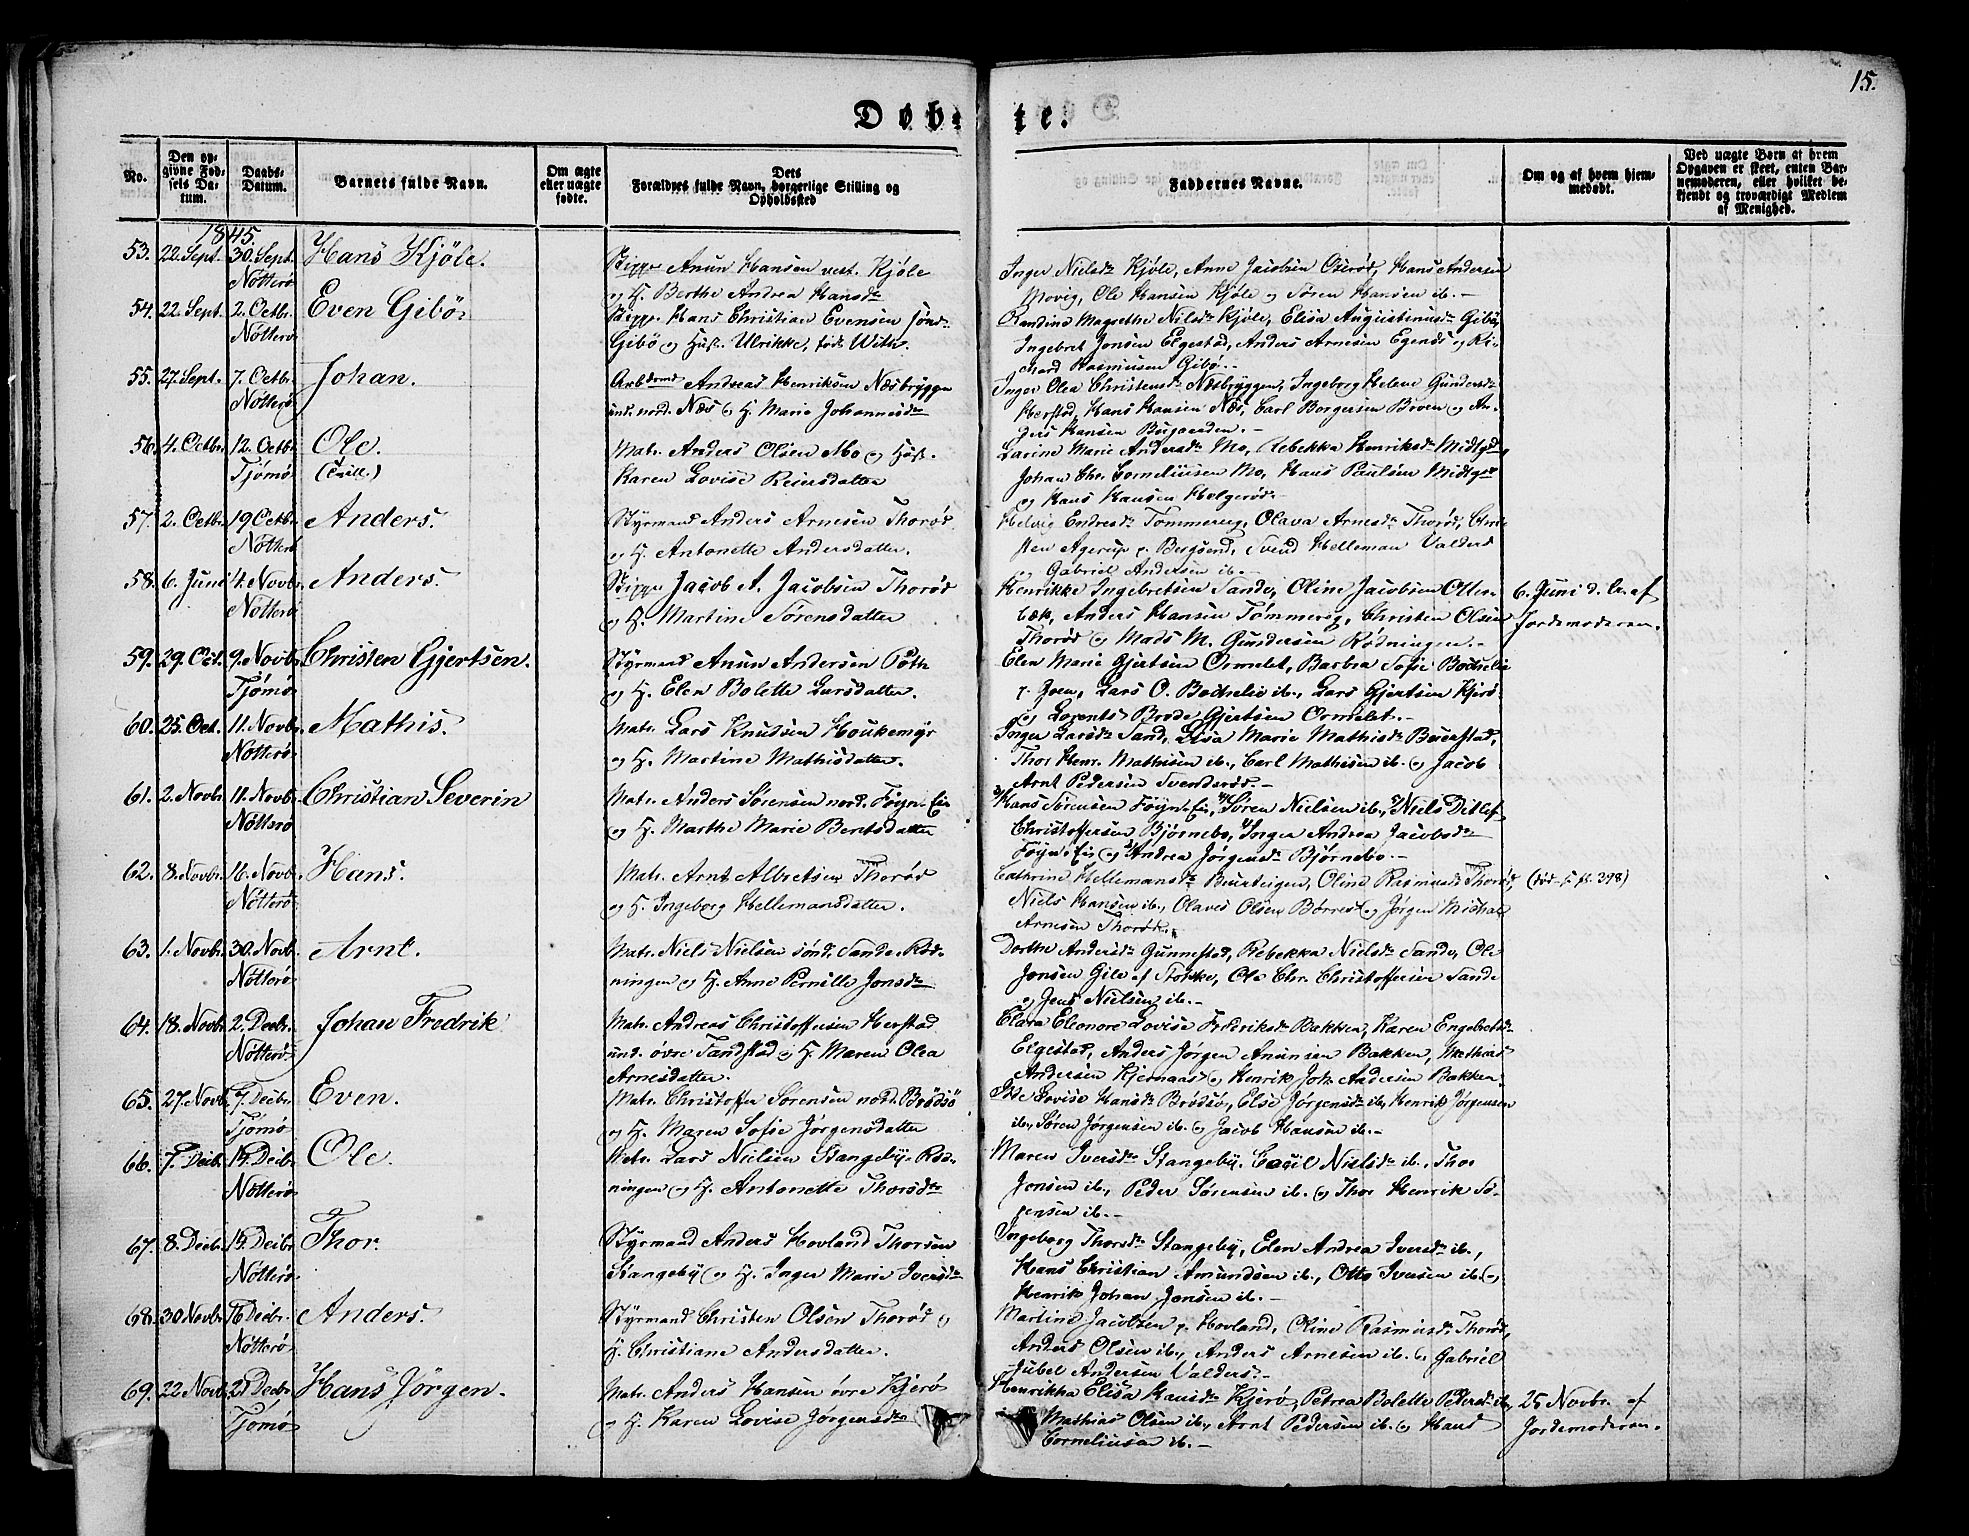 15.
Døbte.
No.
Den opgivne Fødsels Datum.
Daabs-Datum.
Barnets fulde Navn.
Om ægte eller uægte fødte.
Dets Forældres fulde Navn, borgerlige Stilling og Opholdssted
Faddernes Navne.
Om og af hvem hjemmedøbt.
Ved uægte Børn af hvem Opgaven er skeet, enten Barnemoderen, eller hvilket bekjendt og troværdigt Medlem af Menighed.
1845
53. 22. Sept. 30. Sept. Nøtterø Hans Kjøle.
Skipper Anun Hansen vest. Kjøle
og H. Berthe Andrea Hansdr
Inger Nielsdr Kjøle, Anne Jacobsen Oserød, Hans Andersen
Movig, Ole Hansen Kjøle og Søren Hansen ib.-
54. 22. Sept. 2. Octbr. Nøtterø Even Gibø.
Skippr. Hans Christian Evensen sønd.
Gibø og Hust. Ulrikke, født With.
Randine Magrethe Nilsdr Kjøle, Elisa Augustinusdr Gibø,
Ingebret Jonsen Elgestad, Anders Arnesen Egenæs og Ri-
chard Rasmussen Gibø.-
55. 27. Sept. 7. Octbr. Nøtterø Johan.
Arbdsmd Andreas Henriksen Næsbryggen
und. nord. Næs og H. Marie Johannesdr
Inger Olea Christensdr Næsbryggen, Ingeborg Helene Gundersdr
Herstad, Hans Hansen Næs, Carl Borgersen Boven og An-
ders Hansen Bugaarden.-
56. 4. Octbr. 12. Octbr. Tjømø Ole.
(Tvill.)
Matr. Anders Olsen Mo og Hust.
Karen Lovise Reiersdatter
Larine Marie Andersdr Mo, Rebekka Henriksdr Midtgd,
Johan Chr. Corneliussen Mo, Hans Paulsen Midtgd
og Hans Hansen Helgerød.
57. 2. Octbr. 19 Octbr. Nøtterø Anders.
Styrmand Anders Arnesen Thorød
og H. Antonette Andersdatter.
Helvig Endresdr Tømmereg, Olava Arnesdr Thorød, Chri-
sten Agerup p. Bergsend, Svend Helleman Valders
og Gabriel Andersen ib.-
58. 6. Juni 4. Novbr. Nøtterø Anders.
Skippr Jacob A. Jacobsen Thorød
og H. Martine Sørensdatter
Henrikke Ingebretsen Sande, Oline Jacobsen Ollen-
bæk, Anders Hansen Tømmereg, Christen Olsen
Thorød og Mads M. Gundersen Rødningen.-
6. Juni d. A. af
Jordemoderen.
59. 29. Oct. 9. Novbr. Tjømø Christen Gjertsen.
Styrmand Anun Andersen Póth
og H. Elen Bolette Larsdatter.
Elen Marie Gjertsen Ormelet, Barbra Sofie Bodselie
p. Goen, Lars O. Bodselie ib., Lars Gjertsen Kjerø
og Lorents Brode Gjertsen Ormelet.-
60. 25. Oct. 11. Novbr. Nøtterø Mathis.
Matr. Lars Knudsen Houkemyr
og H. Martine Mathisdatter.
Inger Larsdr Sand, Elsa Marie Mathisdr Beierstad,
Thor Henr. Mathisen ib., Carl Mathisen ib. og Jacob
Arnt Pedersen Svenderød.-
61. 2. Novbr. 11. Novbr. Nøtterø Christian Severin
Matr. Anders Sørensen nord. Føyn-Eie
og H. Marthe Marie Berntsdatter
Hans Sørensen Føyn-Eie, Søren Nielsen ib., Niels Ditlef
Christoffersen Bjørnebo, Inger Andrea Jacobsdr
Føyn-Eie og Andrea Jørgensdr Bjørnebo.-
62. 8. Novbr. 16. Novb. Nøtterø Hans.
Matr. Arnt Albretsen Thorød
og H. Ingeborg Hellemansdatter.
Cathrine Hellemansdr Buerteigen, Oline Rasmusdr Thorød,
Niels Hansen ib., Olaves Olsen Børrest og Jørgen Michael
Arnesen Thorød.
(død. s. pg. 398)
63. 1. Novbr. 30. Novb. Nøtterø Arnt.
Matr. Niels Nielsen sønd. Sande-Rød-
ningen og H. Anne Pernille Jonsdr
Dorthe Andersdr Gunnestad, Rebekka Nielsdr Sande, Ole
Jonsen Gile af Stokke, Ole Chr. Christoffersen Sande
og Jens Nielsen ib.-
64. 18. Novbr. 2. Decbr. Nøtterø Johan Fredrik
Matr. Andreas Christoffersen Herstad
und. øvre Tandstad og H. Maren Olea
Arnesdatter.
Clara Eleonore Lovise Fredriksdr Bakken, Karen Engebretsdr
Elgestad, Anders Jørgen Anunsen Bakken, Mathias
Andersen Kjernaas og Henrik Joh. Andersen Bakken.
65. 27. Novb. 7. Decbr. Tjømø Even.
Matr. Christoffer Sørensen nord. Brødsø
og H. Maren Sofie Jørgensdatter
Ide Lovise Hansdr Brødsø, Else Jørgensdr ib., Henrik Jørgensen
ib., Søren Jørgensen ib. og Jacob Hansen ib.-
66. 7. Decb. 14. Decbr. Nøtterø Ole.
Matr. Lars Nielsen Stangeby-Rød-
ningen og H. Antonette Thorsdr
Maren Iversdr Stangeby, Cecil Nielsdr ib., Thor
Jonsen ib., Peder Sørensen ib. og Thor Henrik Sø-
rensen ib.-
67. 8. Decb. 14. Decbr. Nøtterø Thor.
Styrmand Anders Hovland Thorsen
Stangeby og H. Inger Marie Iversdr
Ingeborg Thorsdr Stangeby, Elen Andrea Iversdr ib.,
Hans Christian Amundsen ib., Otto Iversen ib. og
Henrik Johan Jonsen ib.-
68. 30 Novbr. 16 Decbr. Nøtterø Anders.
Styrmand Christen Olsen Thorød og
H. Christiane Andersdatter.
Martine Jacobsen p. Hovland, Oline Rasmusdr Thorød,
Anders Olsen ib., Anders Arnesen ib. og Gabriel
Jubel Andersen Valders.-
69. 22 Novb. 21 Decbr. Tjømø Hans Jørgen.
Matr. Anders Hansen øvre Kjerø
og H. Karen Lovise Jørgensdr
Henrikka Elisa Hansdr Kjerø, Petrea Bolette Pedersdr ib.,
Mathias Olsen ib., Arnt Pedersen ib. og Hans
Corneliusen ib.-
25 Novbr. af
Jordemoderen.